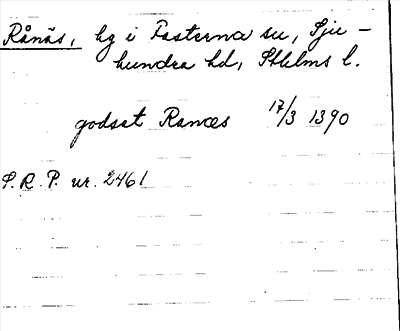 Rånäs, hg i Fasterna sn, Sju-
hundra hd, Sthlms l.
godset Ranæs 17/3 1390
S.R.P. nr. 2461